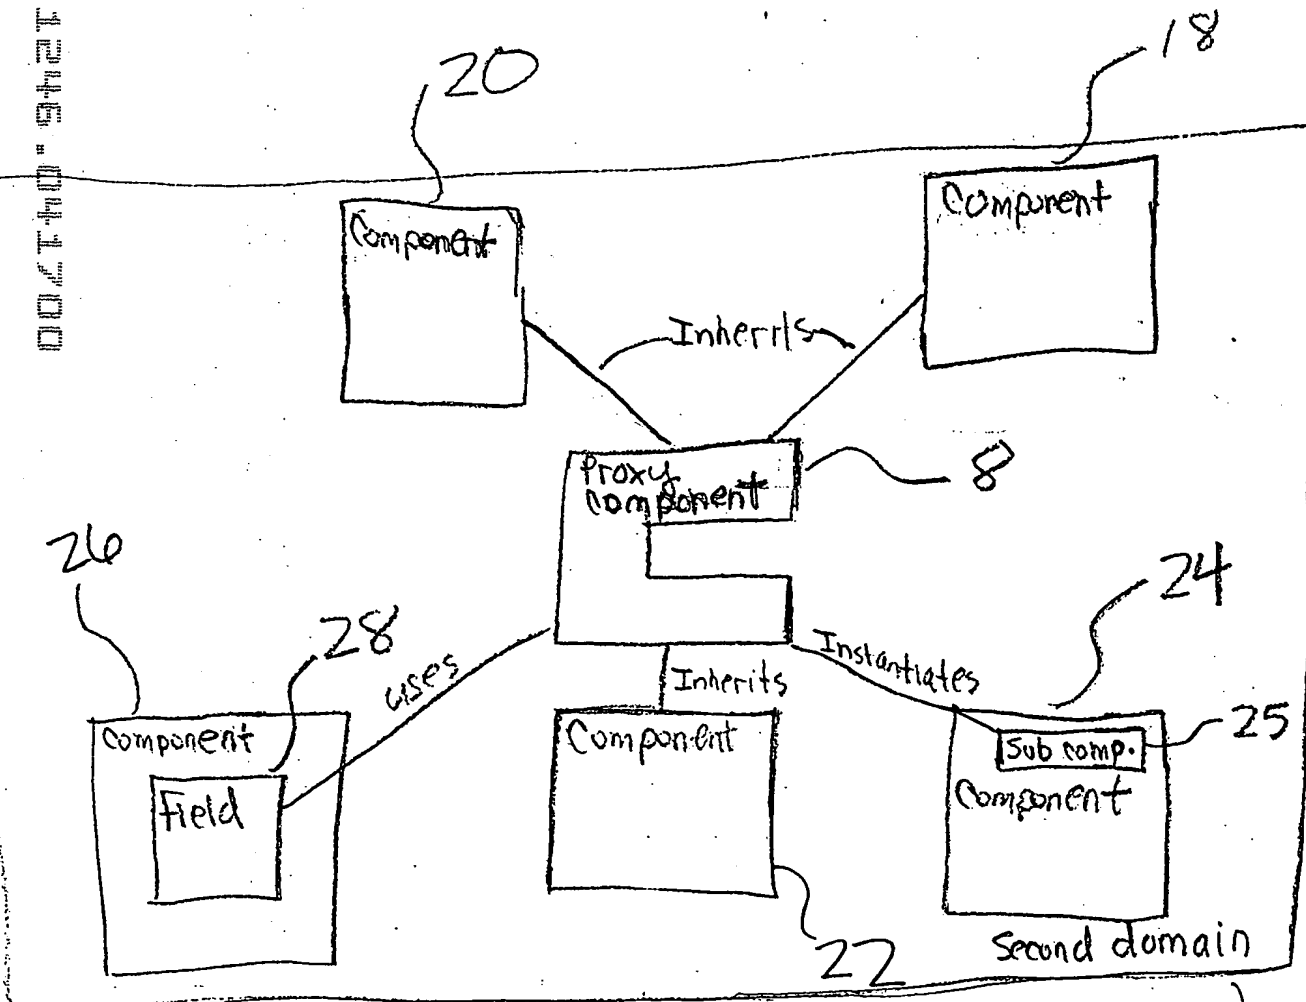 1246.041700
20
18
Component
Component
Inherits
Proxy
component
8
26
28
24
uses
Inherits
Instantiates
25
Component
Field
Component
Sub comp.
Component
22
Second domain